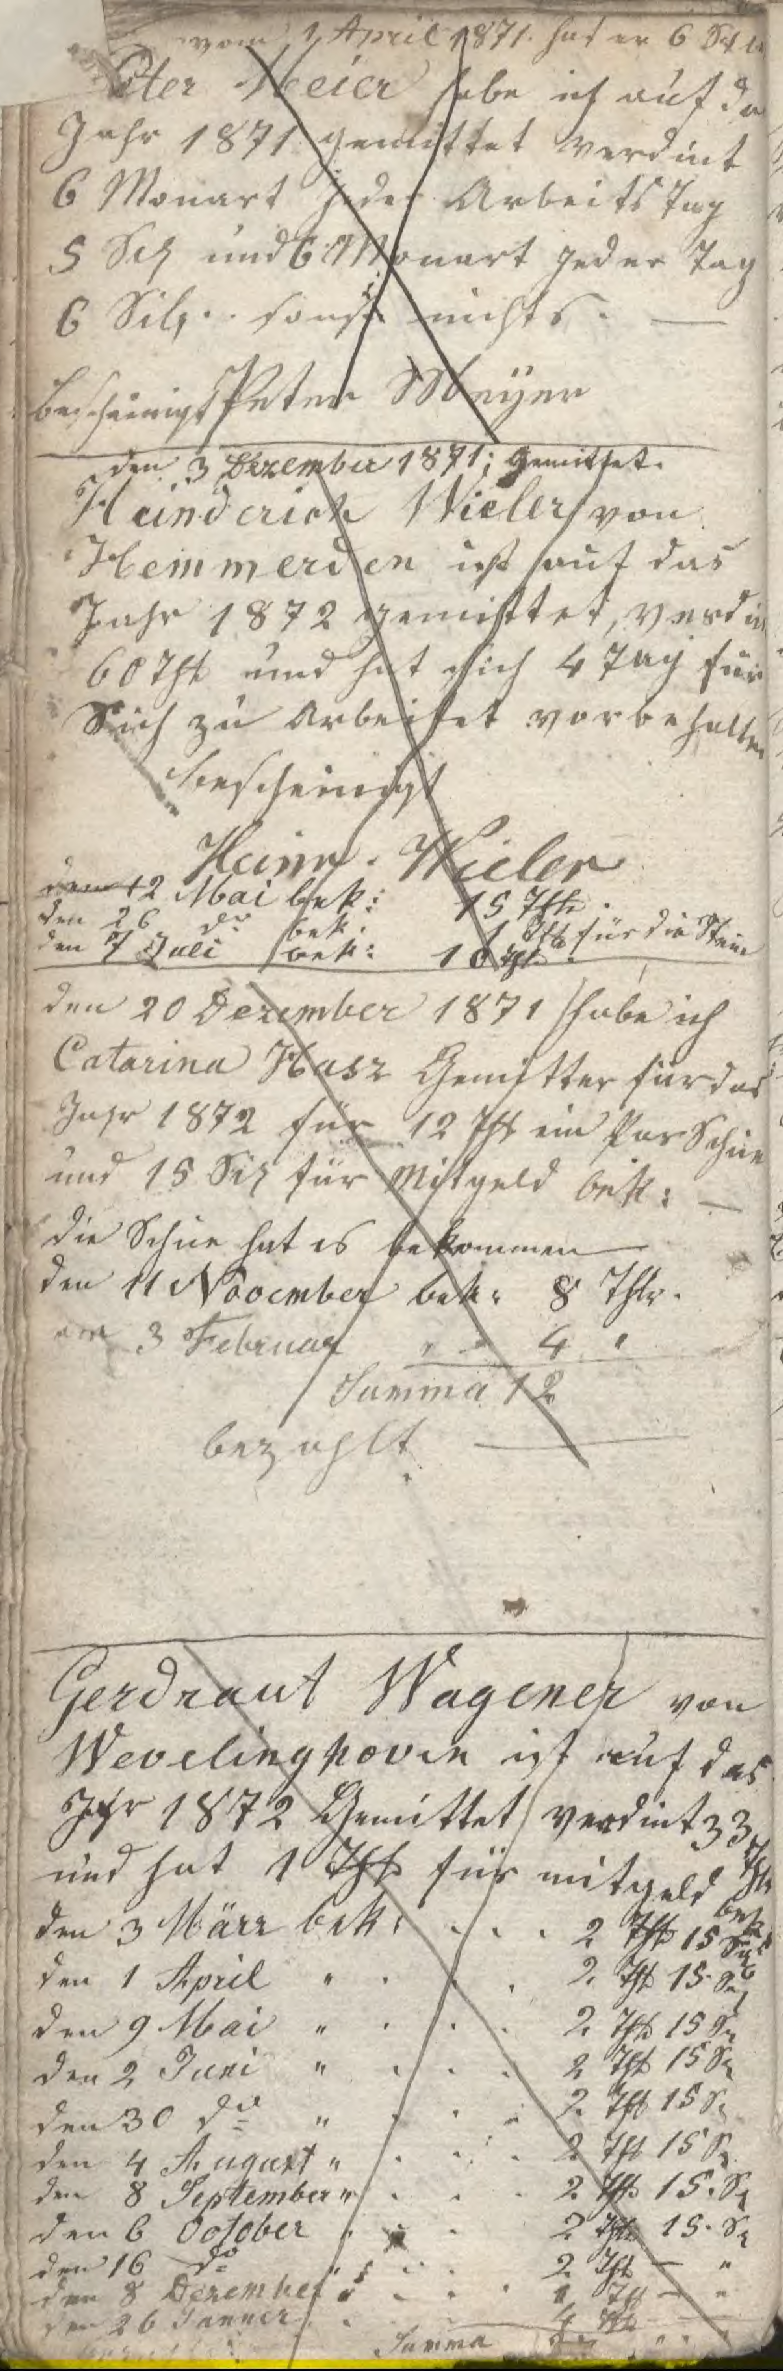 vom 1 April 1871. hat er 6
Peter Meier habe ich auf da
Jahr 1871 gemittet verdint
6 Monart jeder Arbeits Tag
5 Slg und 6 Monart jeder Tag
6 Silg. sonst nichts. —
bescheinigt Peter Meyer
den 3 Dezember 1871; gemittet.
Heinderich Wieler von
Hemmerden ist auf das
Jahr 1872 gemittet, verdin
60 Thl und hat sich 4 Tag für
Sich zu Arbeitet vorbehalten
bescheinigt
Heinr. Wieler
den 12 Mai bek: 15 Thlr.
den 26 do bek. 1 Thlr für die Steine
den 7 Juli bek: 10 Thl.
den 20 Dezember 1871 habe ich
Catarina Hasz Gemittet für das
Jahr 1872 für 12 Thl ein Par Schue
und 15 Slg für Mitgeld bek: —
die Schue hat es bekommen —
den 11 November bek: 8 Thlr.
3 Februar " " 4 "
Summa 12
bezahlt —
Gerdraut Wagener von
Wevelinghoven ist auf das
Jahr 1872 Gemittet verdint 33 Thlr
und hat 1 Thl für mitgeld bek:
den 3 März bek: . . . 2 Thl 15 Sg
den 1 April " . . . 2. Thl 15. Sg
den 9 Mai " . . . 2. Thl 15 Sg
den 2 Juni " . . . 2 Thl 15 Sg
den 30 do " . . . 2. Thl 15 Sg
den 4 August " . . . 2 Thl 15 Sg
den 8 September " . . . 2. Thl 15. Sg
den 6 October . . . 2 Thlr 15. Sg
den 16 do " . . . 2. Thl — "
den 8 Dezember " . . . 1 Thl — "
den 26 Janner . . . 4 Thl —
Summa